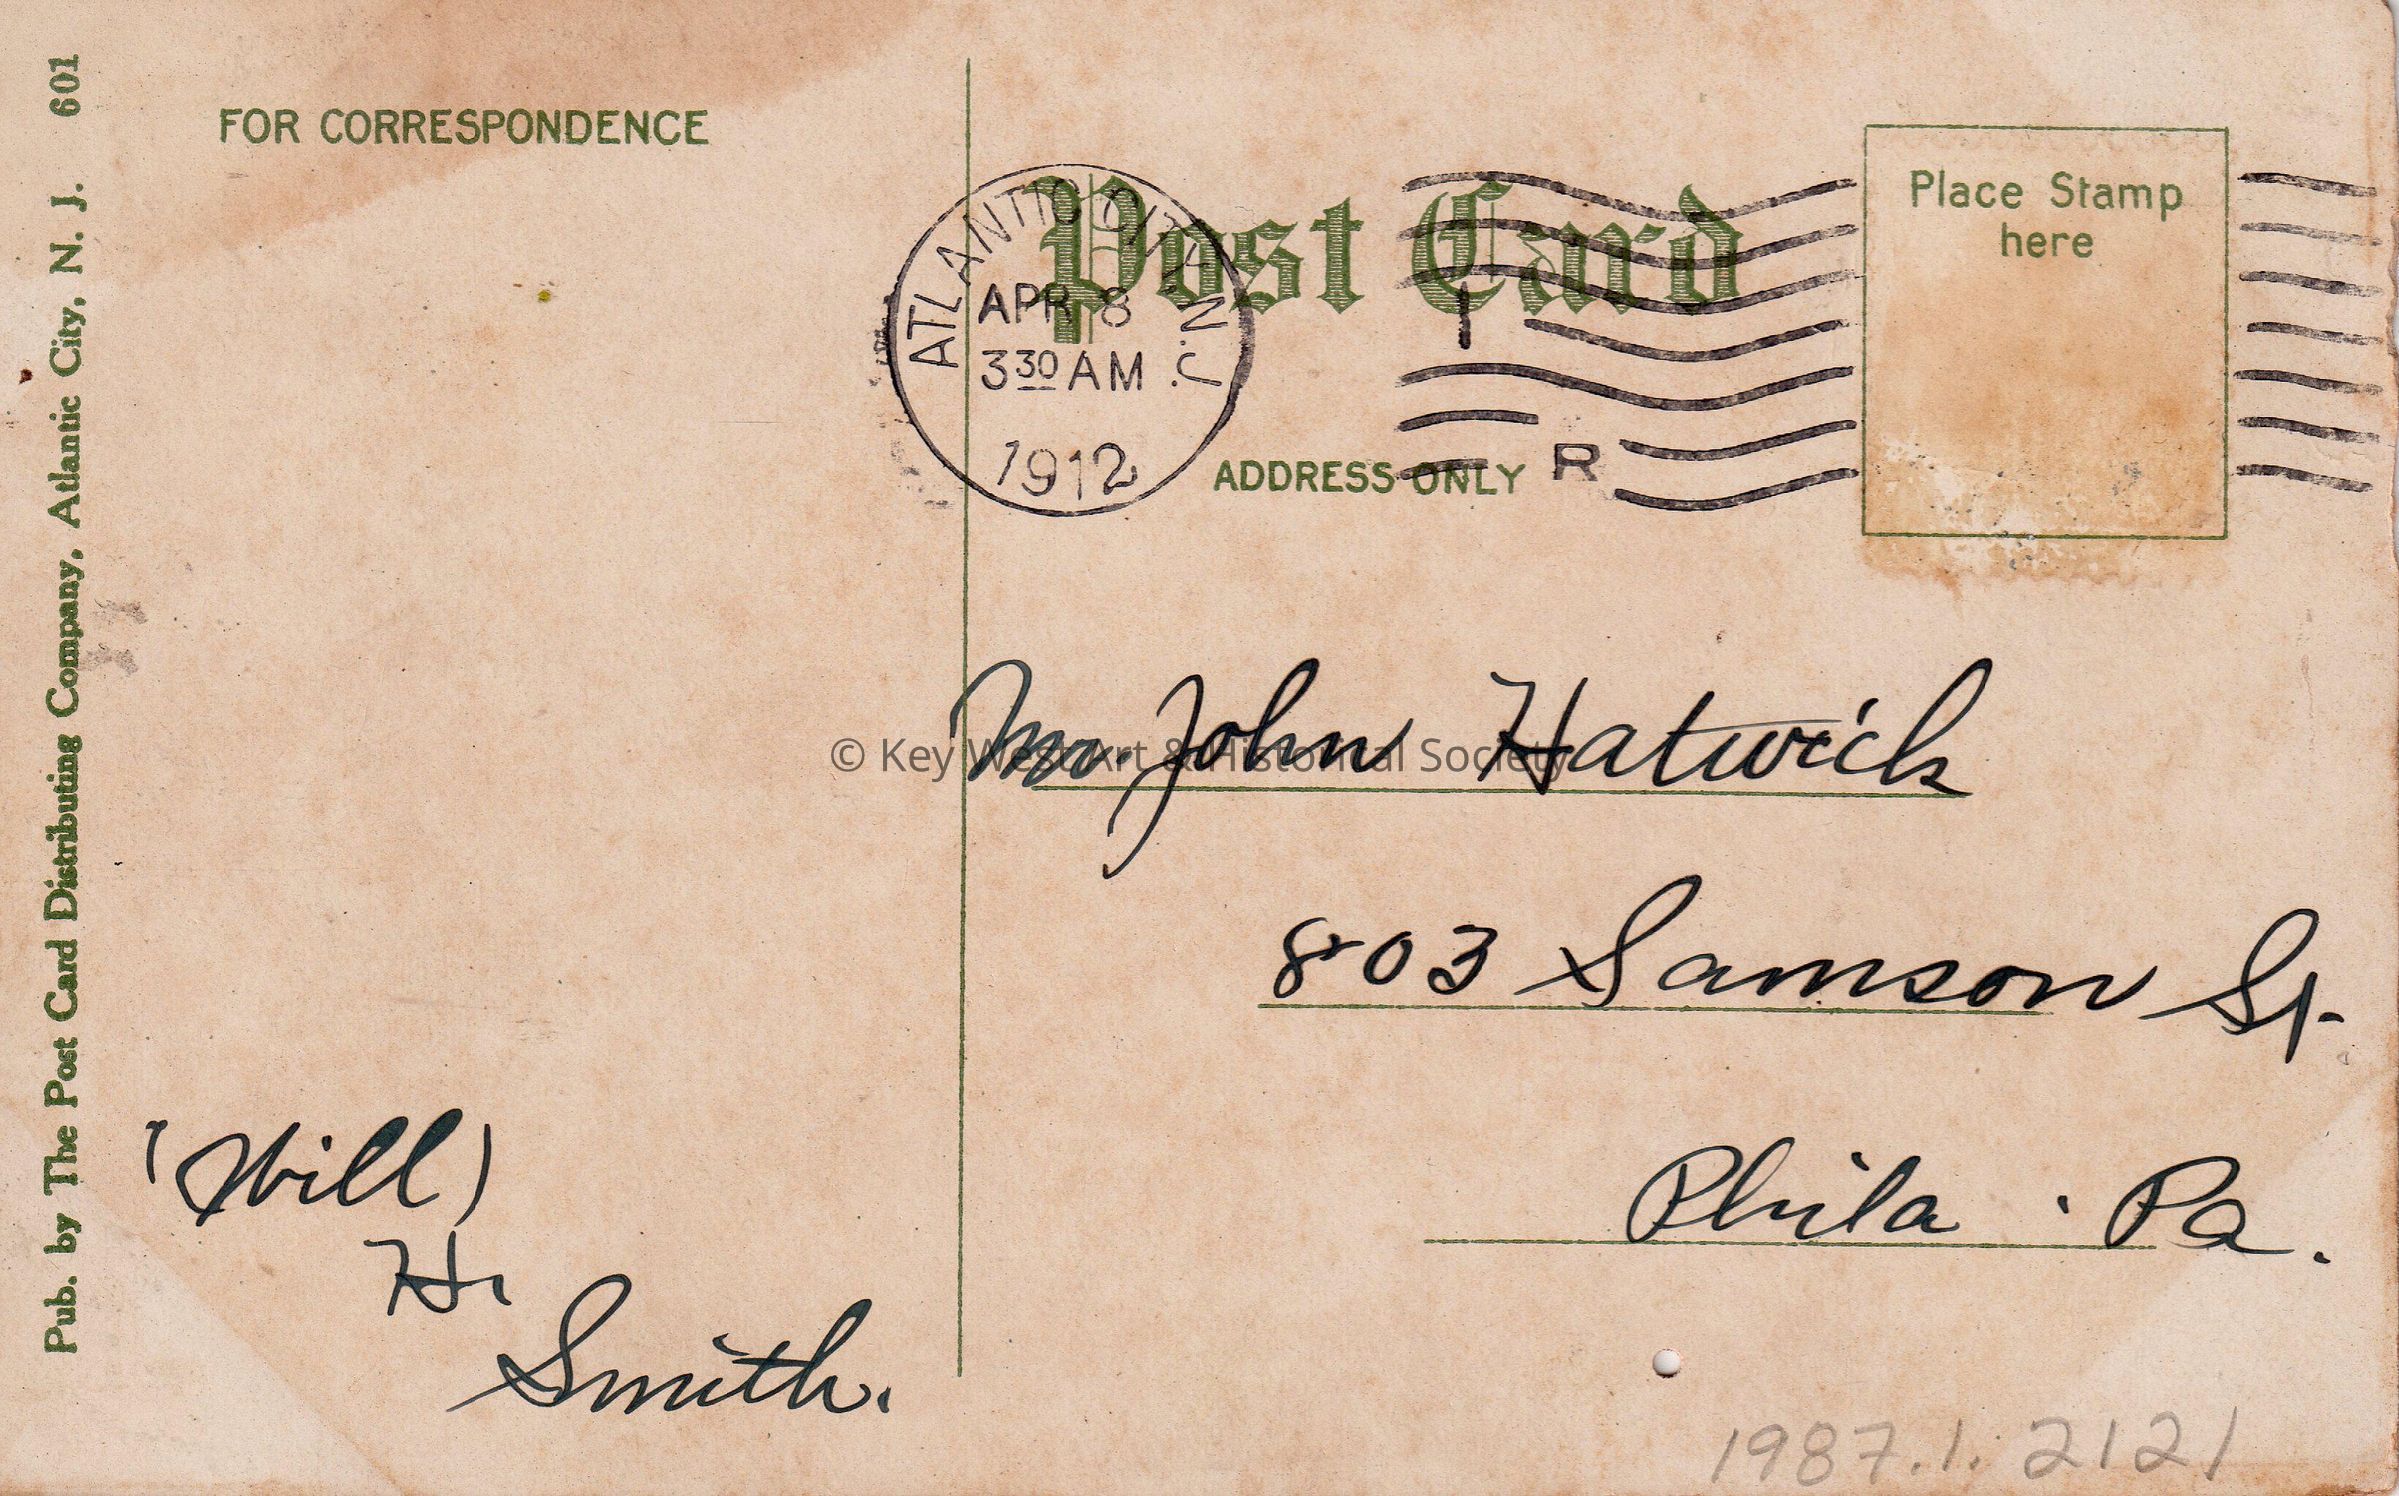 Pub. by The Post Card Distributing Company, Atlantic City, N. J. 601
FOR CORRESPONDENCE
Post Card
Place Stamp
here
ATLANTIC CITY, N.J.
APR 8
3 30 AM
1912
R
ADDRESS ONLY
Mr. John Hatwick
© Key West Art & Historical Society
803 Samson St.
Phila. Pa.
(Will)
H.
Smith.
1987.1.2121